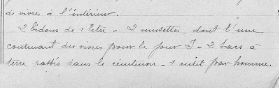 de more, à l'intérieur.
2 bidons de 1 litre - 2 musettes, dont l'une
contenant des vivres pour le jour J - 2 sacs à
terre dans le ceinturon - 1 outil par homme.